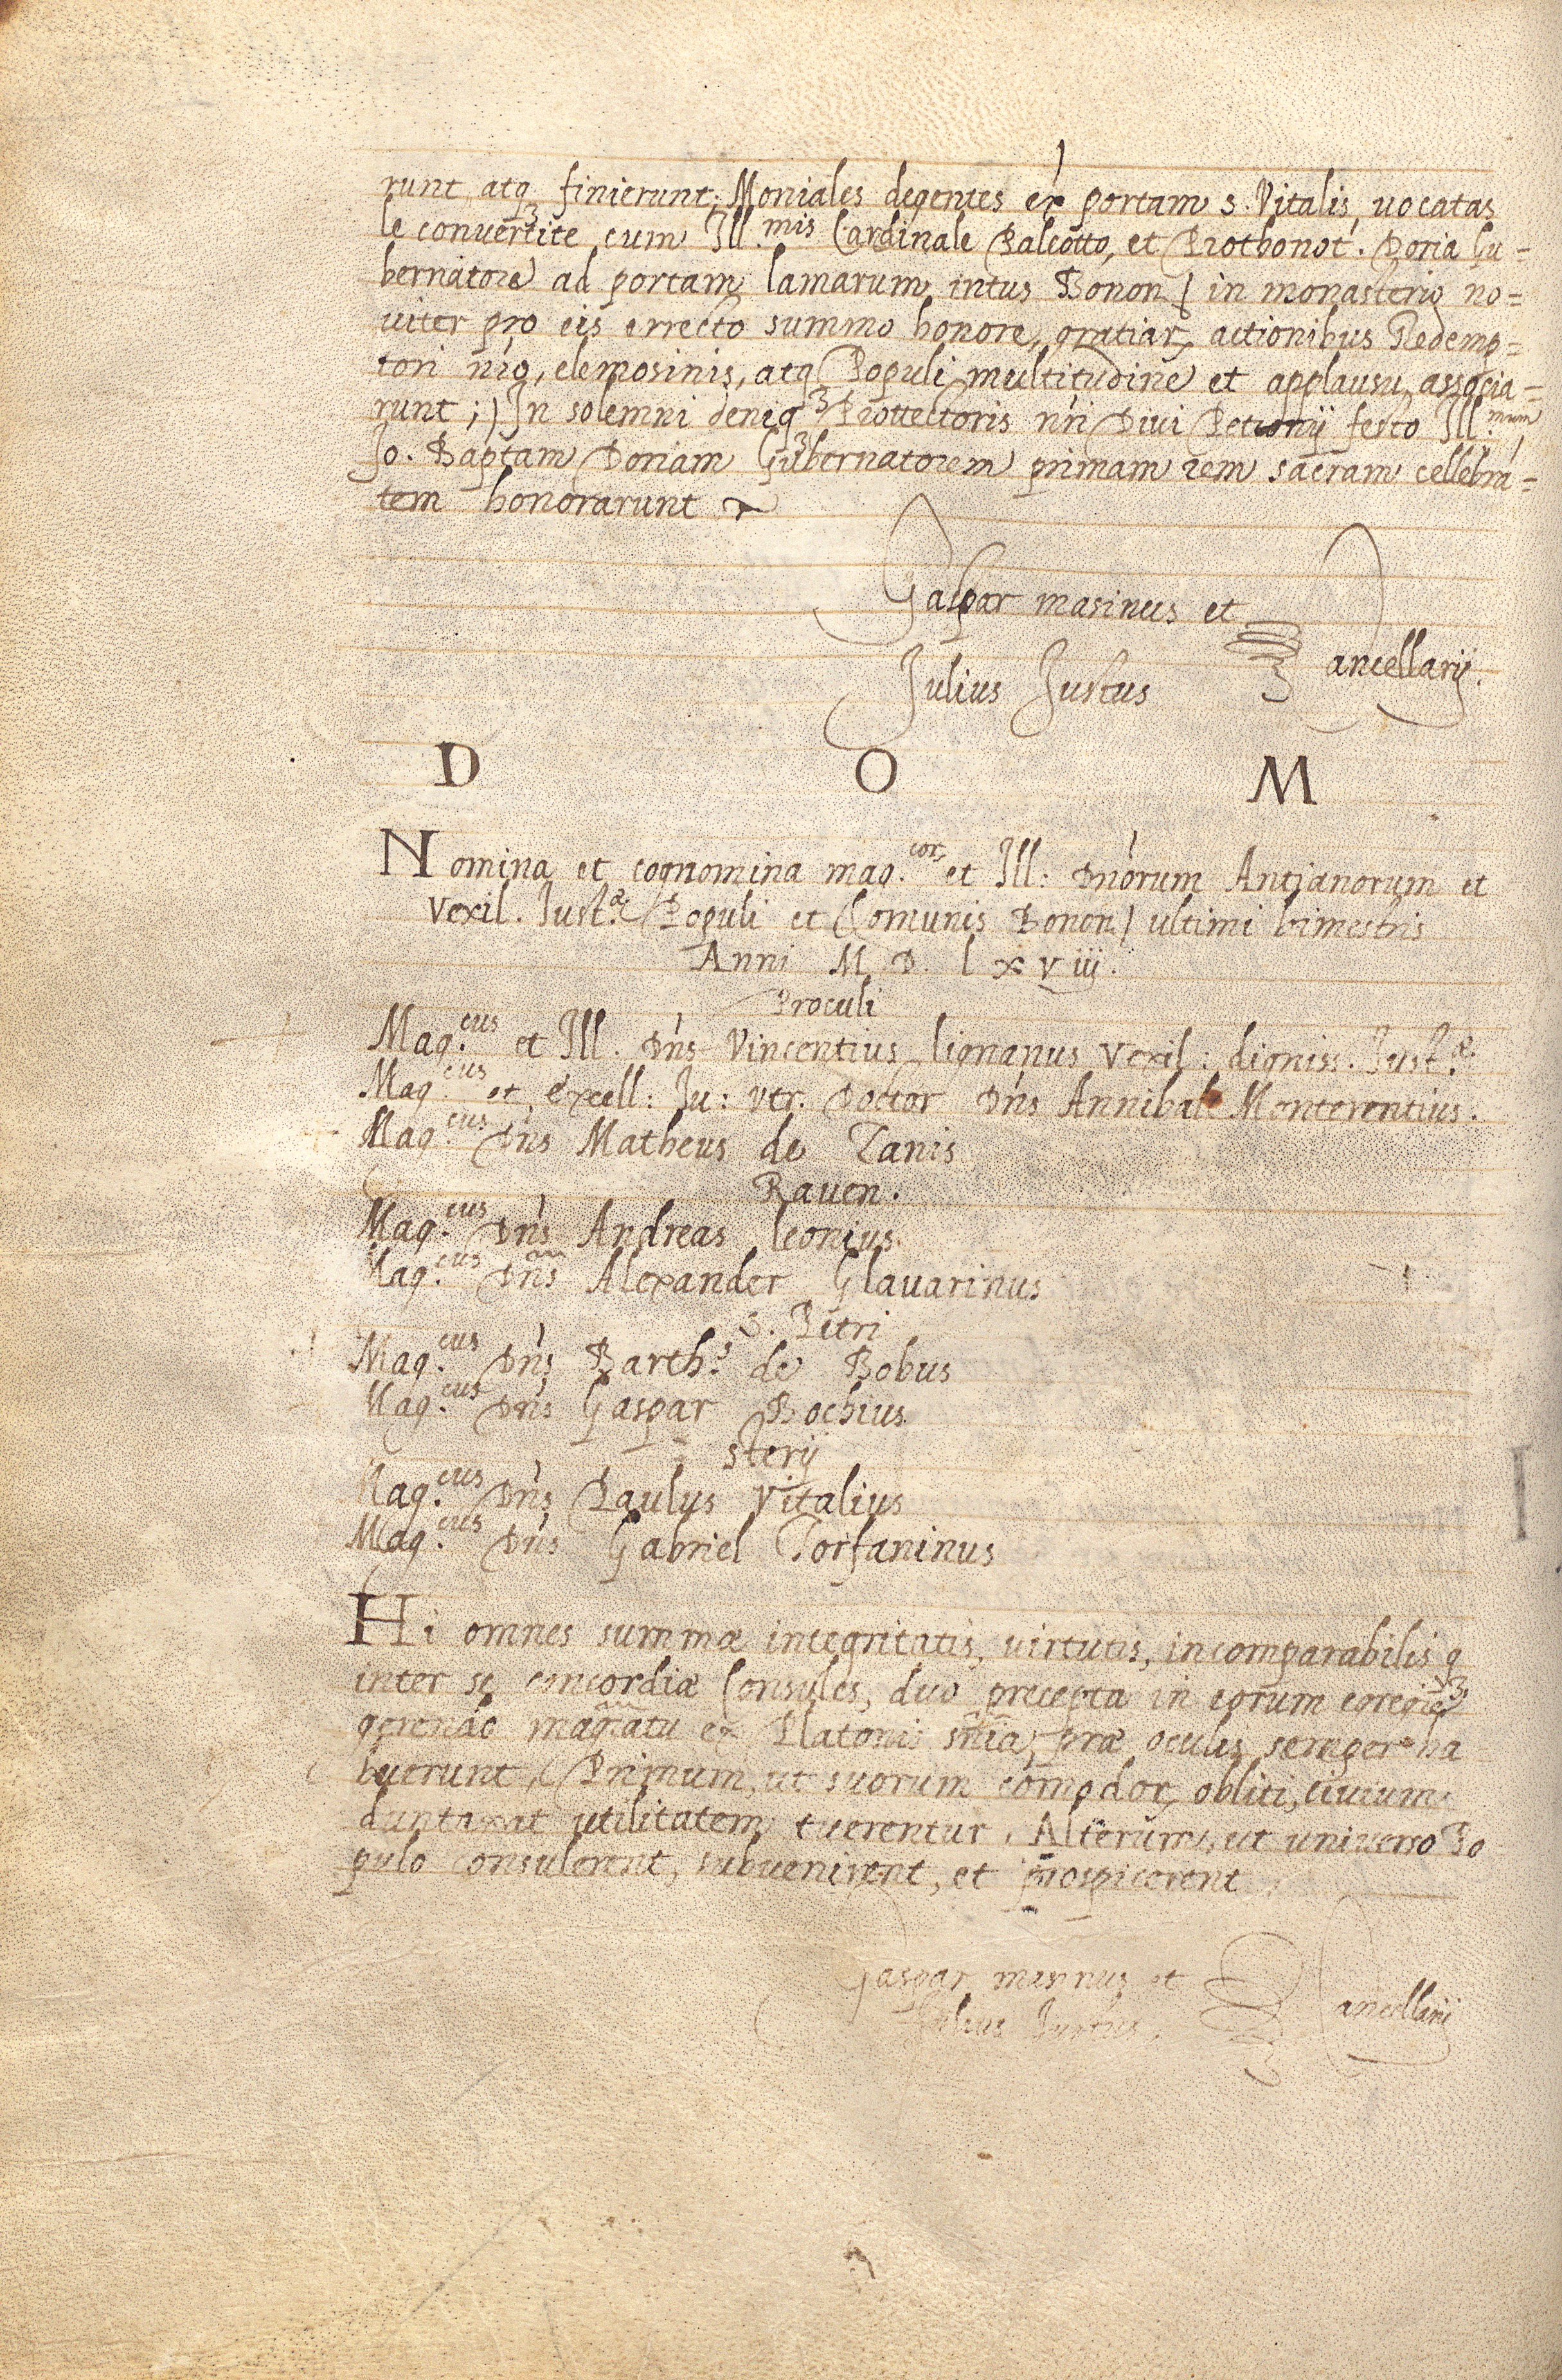 runt, atq3 finierunt; Moniales degentes ex̀ portam s. Vitalis uocatas
le convertite cum Ill.mis Cardinale Paleotto, et Prothonot. Doria Gu=
bernatore ad portam lamarum intus Bonon. in monasterio no=
uiter pro eis errecto summo honore, gratiar, actionibus Redemp=
tori nr̃o, elemosinis, atq3 Populi multitudine et applausu associa=
runt; In solemni deniq3 Prottectoris nr̃i Diui Petronij festo Ill.mum
Jo. Baptam Doriam Gubernatorem primam rem sacram cellebrã=
tem honorarunt
Gaspar masinus et
Julius Justus
Cancellarij.
D O M
Nomina et cognomina mag.cor, et Ill: Dñorum Antianorum et
Vexil. Just.æ Populi et Comunis Bonon. ultimi bimestris
Anni M D. lxviij.
Proculi
Mag.cus et Ill. Dn̄s Vincentius lignanus Vexil: digniss. Just.æ
Mag.cus et Excell: Ju: Vtr. Doctor Dn̄s Annibal Monterentius.
Mag.cus Dn̄s Matheus de Zanis
Rauen.
Mag.cus Dn̄s Andreas leonius.
Mag.cus Dn̄s Alexander Glauarinus
S. Petri
Mag.cus Dn̄s Barth.s de Bobus
Mag.cus Dn̄s Gaspar Bochius
sterij
Mag.cus Dn̄s Paulus Vitalius
Mag.cus Dn̄s Gabriel Torfaninus
Hi omnes summæ integritatis, virtutis, incomparabilis q3
inter se concordiæ Consules, duo precepta in eorum egregie
gerendo magr̃atu ex Platonis sñia, præ oculis semper ha
buerunt, Primum, ut suorum com̃odor, obliti, ciuium
duntaxat utilitatem tuerentur. Alterum, ut universo Po
pulo consulerent, subuenirent, et prospicerent
Gaspar masinus et
Julius Justus
Cancellarij